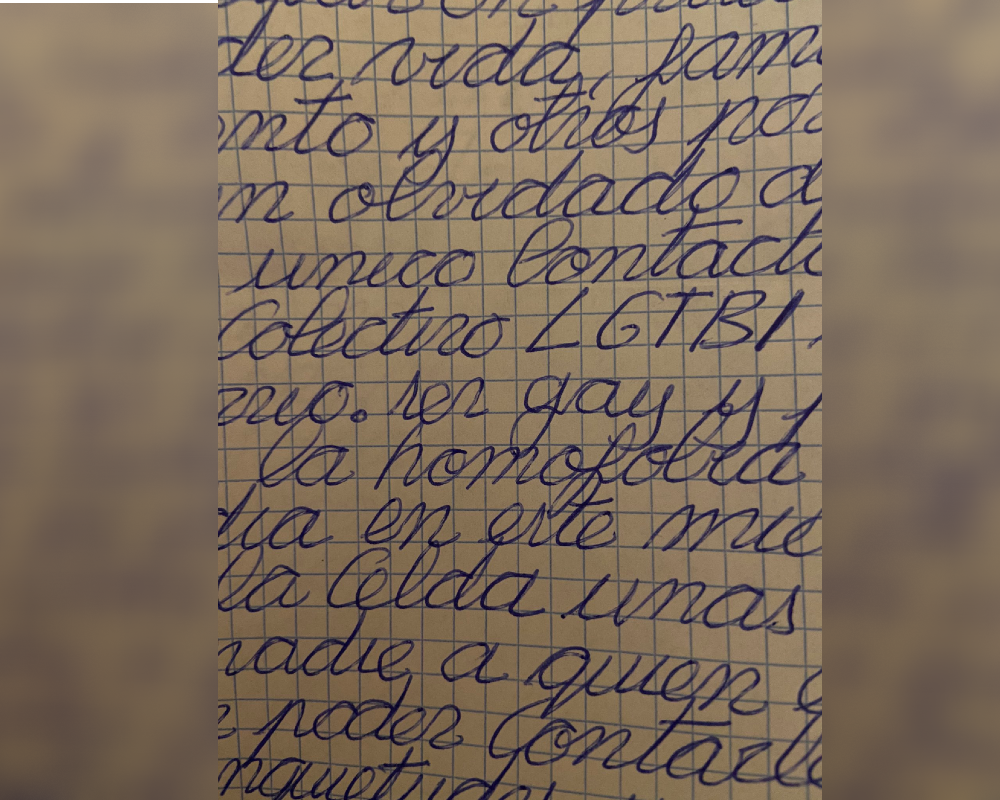 der vida, fami
nto y otros po
n olvidado a
unico Contact
Colectivo LGTBI.
ser gay y
la homofobia
dia en este mu
la Celda unas
nadie a quien
poder Contact
inquietudes